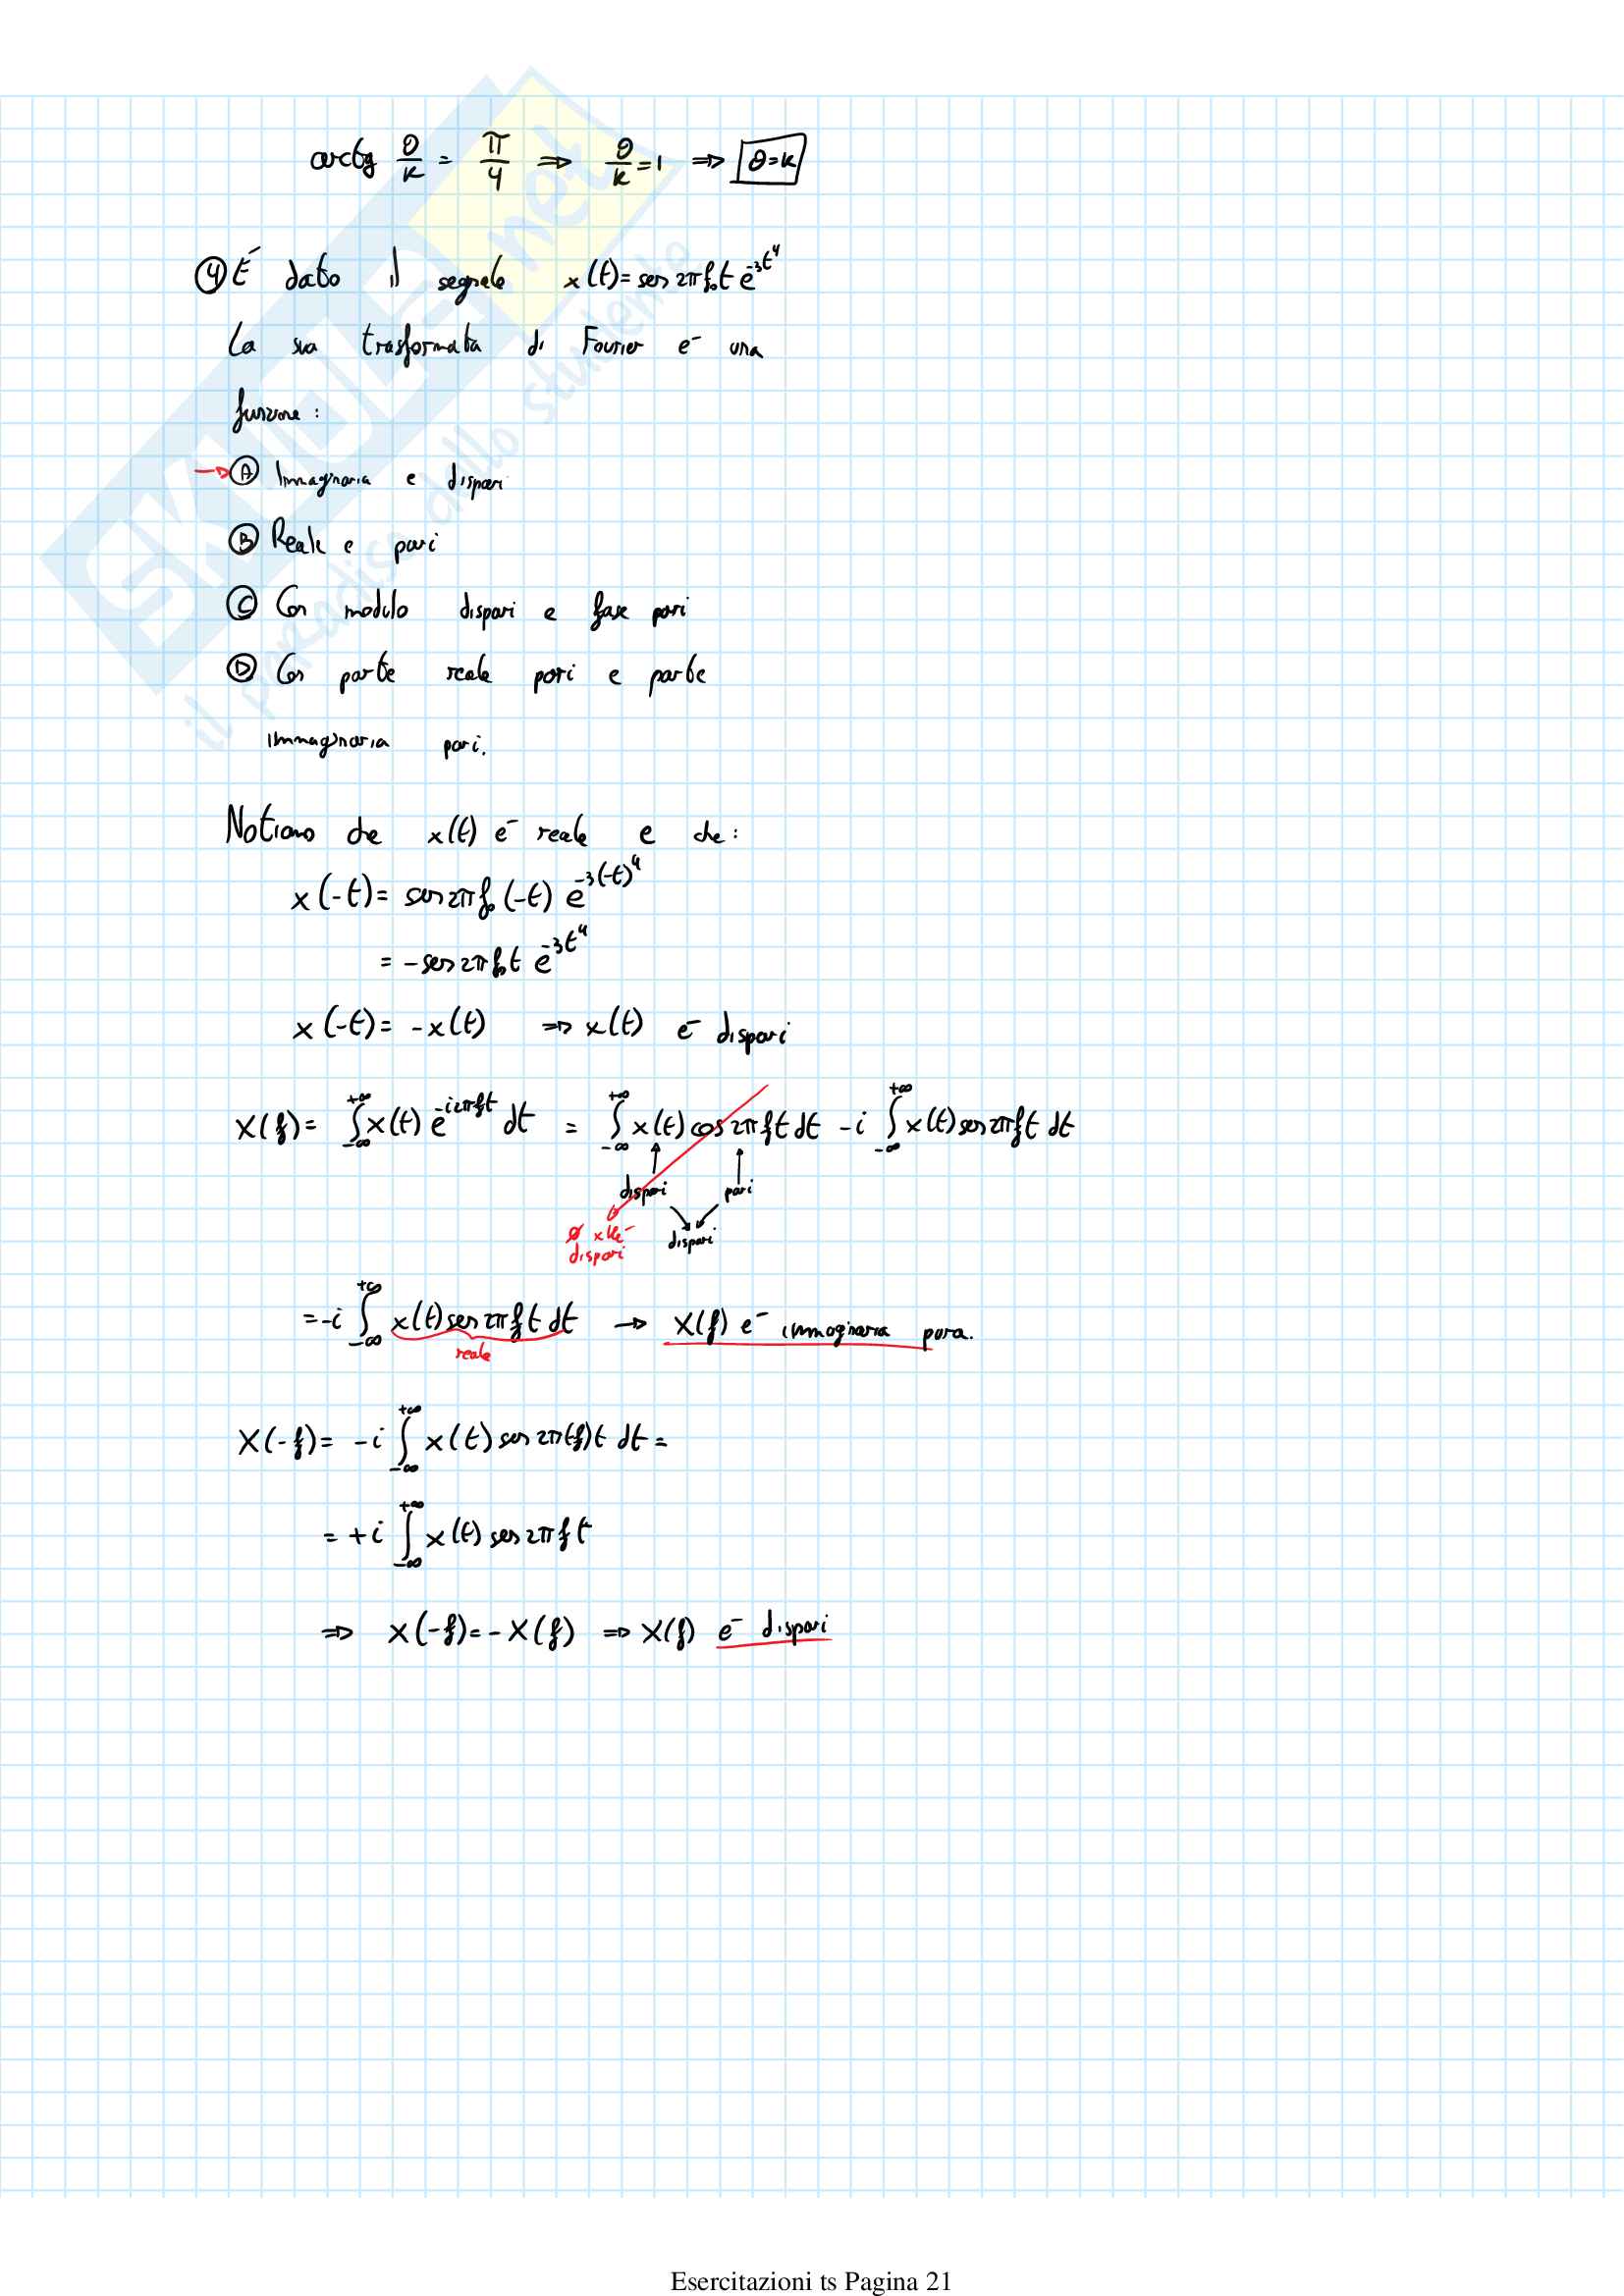 arctg θ/k = π/4 ⇒ θ/k = 1 ⇒ θ=k
④ É dato il segnale x(t)= sen 2πf₀t e^{-3t⁴}
La sua trasformata di Fourier e- una
funzione:
→ Ⓐ Immaginaria e dispari
Ⓑ Reale e pari
Ⓒ Con modulo dispari e fase pari
Ⓓ Con parte reale pari e parte
immaginaria pari.
Notiamo che x(t) e- reale e che:
x(-t)= sen 2πf₀(-t) e^{-3(-t)⁴}
= -sen 2πf₀t e^{-3t⁴}
x(-t)= -x(t) ⇒ x(t) e- dispari
X(f)= ∫_{-∞}^{+∞} x(t) e^{-i2πft} dt = ∫_{-∞}^{+∞} x(t) cos 2πft dt -i ∫_{-∞}^{+∞} x(t) sen 2πft dt
dispari pari
∅ x(t) e-
dispari dispari
= -i ∫_{-∞}^{+∞} x(t) sen 2πft dt → X(f) e- immaginaria pura.
reale
X(-f)= -i ∫_{-∞}^{+∞} x(t) sen 2π(-f)t dt =
= +i ∫_{-∞}^{+∞} x(t) sen 2πft
⇒ X(-f)= -X(f) ⇒ X(f) e- dispari
SKUOLA.net
il paradiso dello studente
Esercitazioni ts Pagina 21